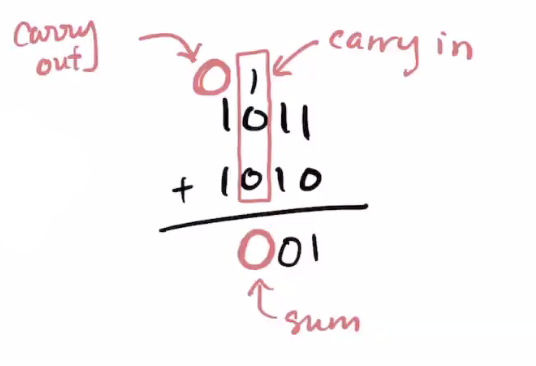 carry out
carry in
0 1
1011
+ 1010
001
sum